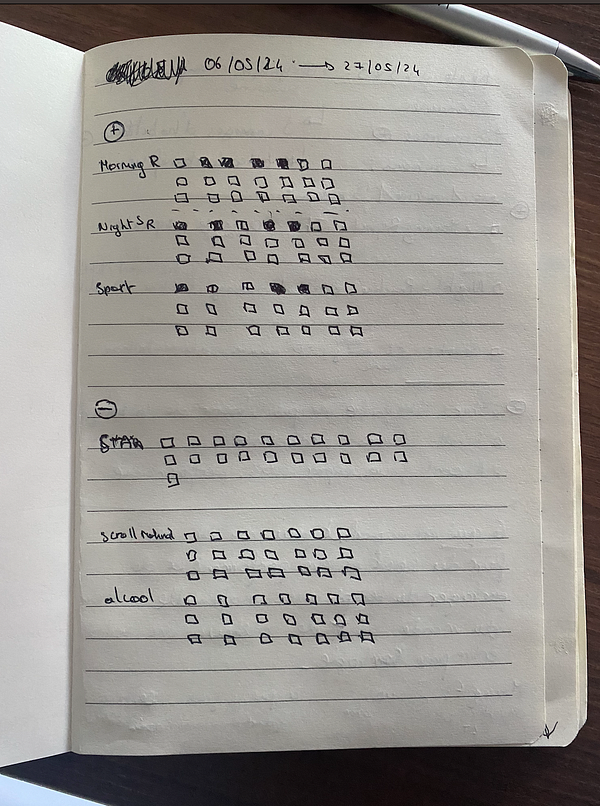 06/05/24 → 27/05/24
+
Morning R
Night S R
Sport
−
scroll
alcool